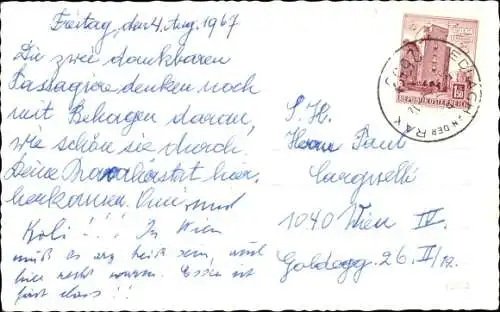 Freitag, den 4. Aug. 1967
Die zwei dankbaren
Passagiere denken noch
mit Behagen daran,
wie schön sie durch
Deine hier
herkamen. Omi und
Koli!!! In Wien
muß es arg heiß sein, und
hier recht warm. Essen ist
fast class!!
S. H.
Herrn Paul
1040 Wien IV.
Goldegg. 26 II/12.
REPUBLIK ÖSTERREICH
AN DER RAX